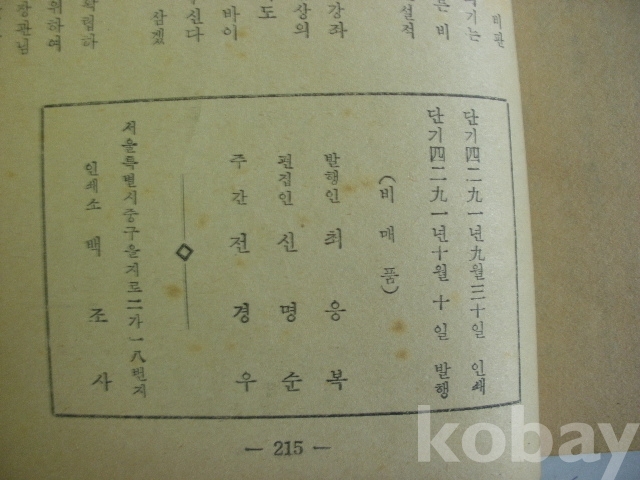 단기四二九一년九월三十일 인쇄
단기四二九一년十월十일 발행
(비매품)
발행인 최응복
편집인 신명순
주간 전경우
서울특별시중구을지로二가一八번지
인쇄소 백조사
— 215 —
kobay